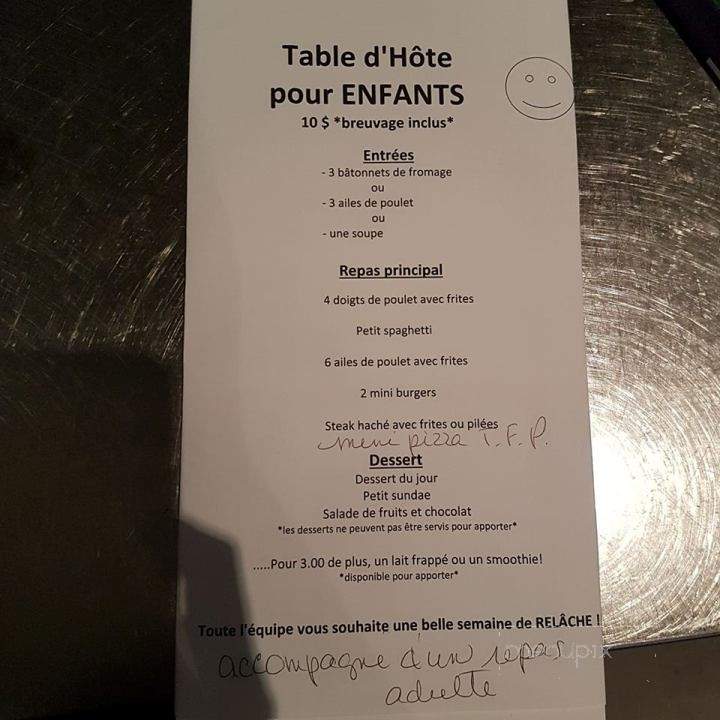 Table d'Hôte
pour ENFANTS
10 $ *breuvage inclus*
Entrées
- 3 bâtonnets de fromage
ou
- 3 ailes de poulet
ou
- une soupe
Repas principal
4 doigts de poulet avec frites
Petit spaghetti
6 ailes de poulet avec frites
2 mini burgers
Steak haché avec frites ou pilées
meni pizza T.F.P.
Dessert
Dessert du jour
Petit sundae
Salade de fruits et chocolat
*les desserts ne peuvent pas être servis pour apporter*
.....Pour 3.00 de plus, un lait frappé ou un smoothie!
*disponible pour apporter*
Toute l'équipe vous souhaite une belle semaine de RELÂCHE !
accompagne d'un repas
adulte